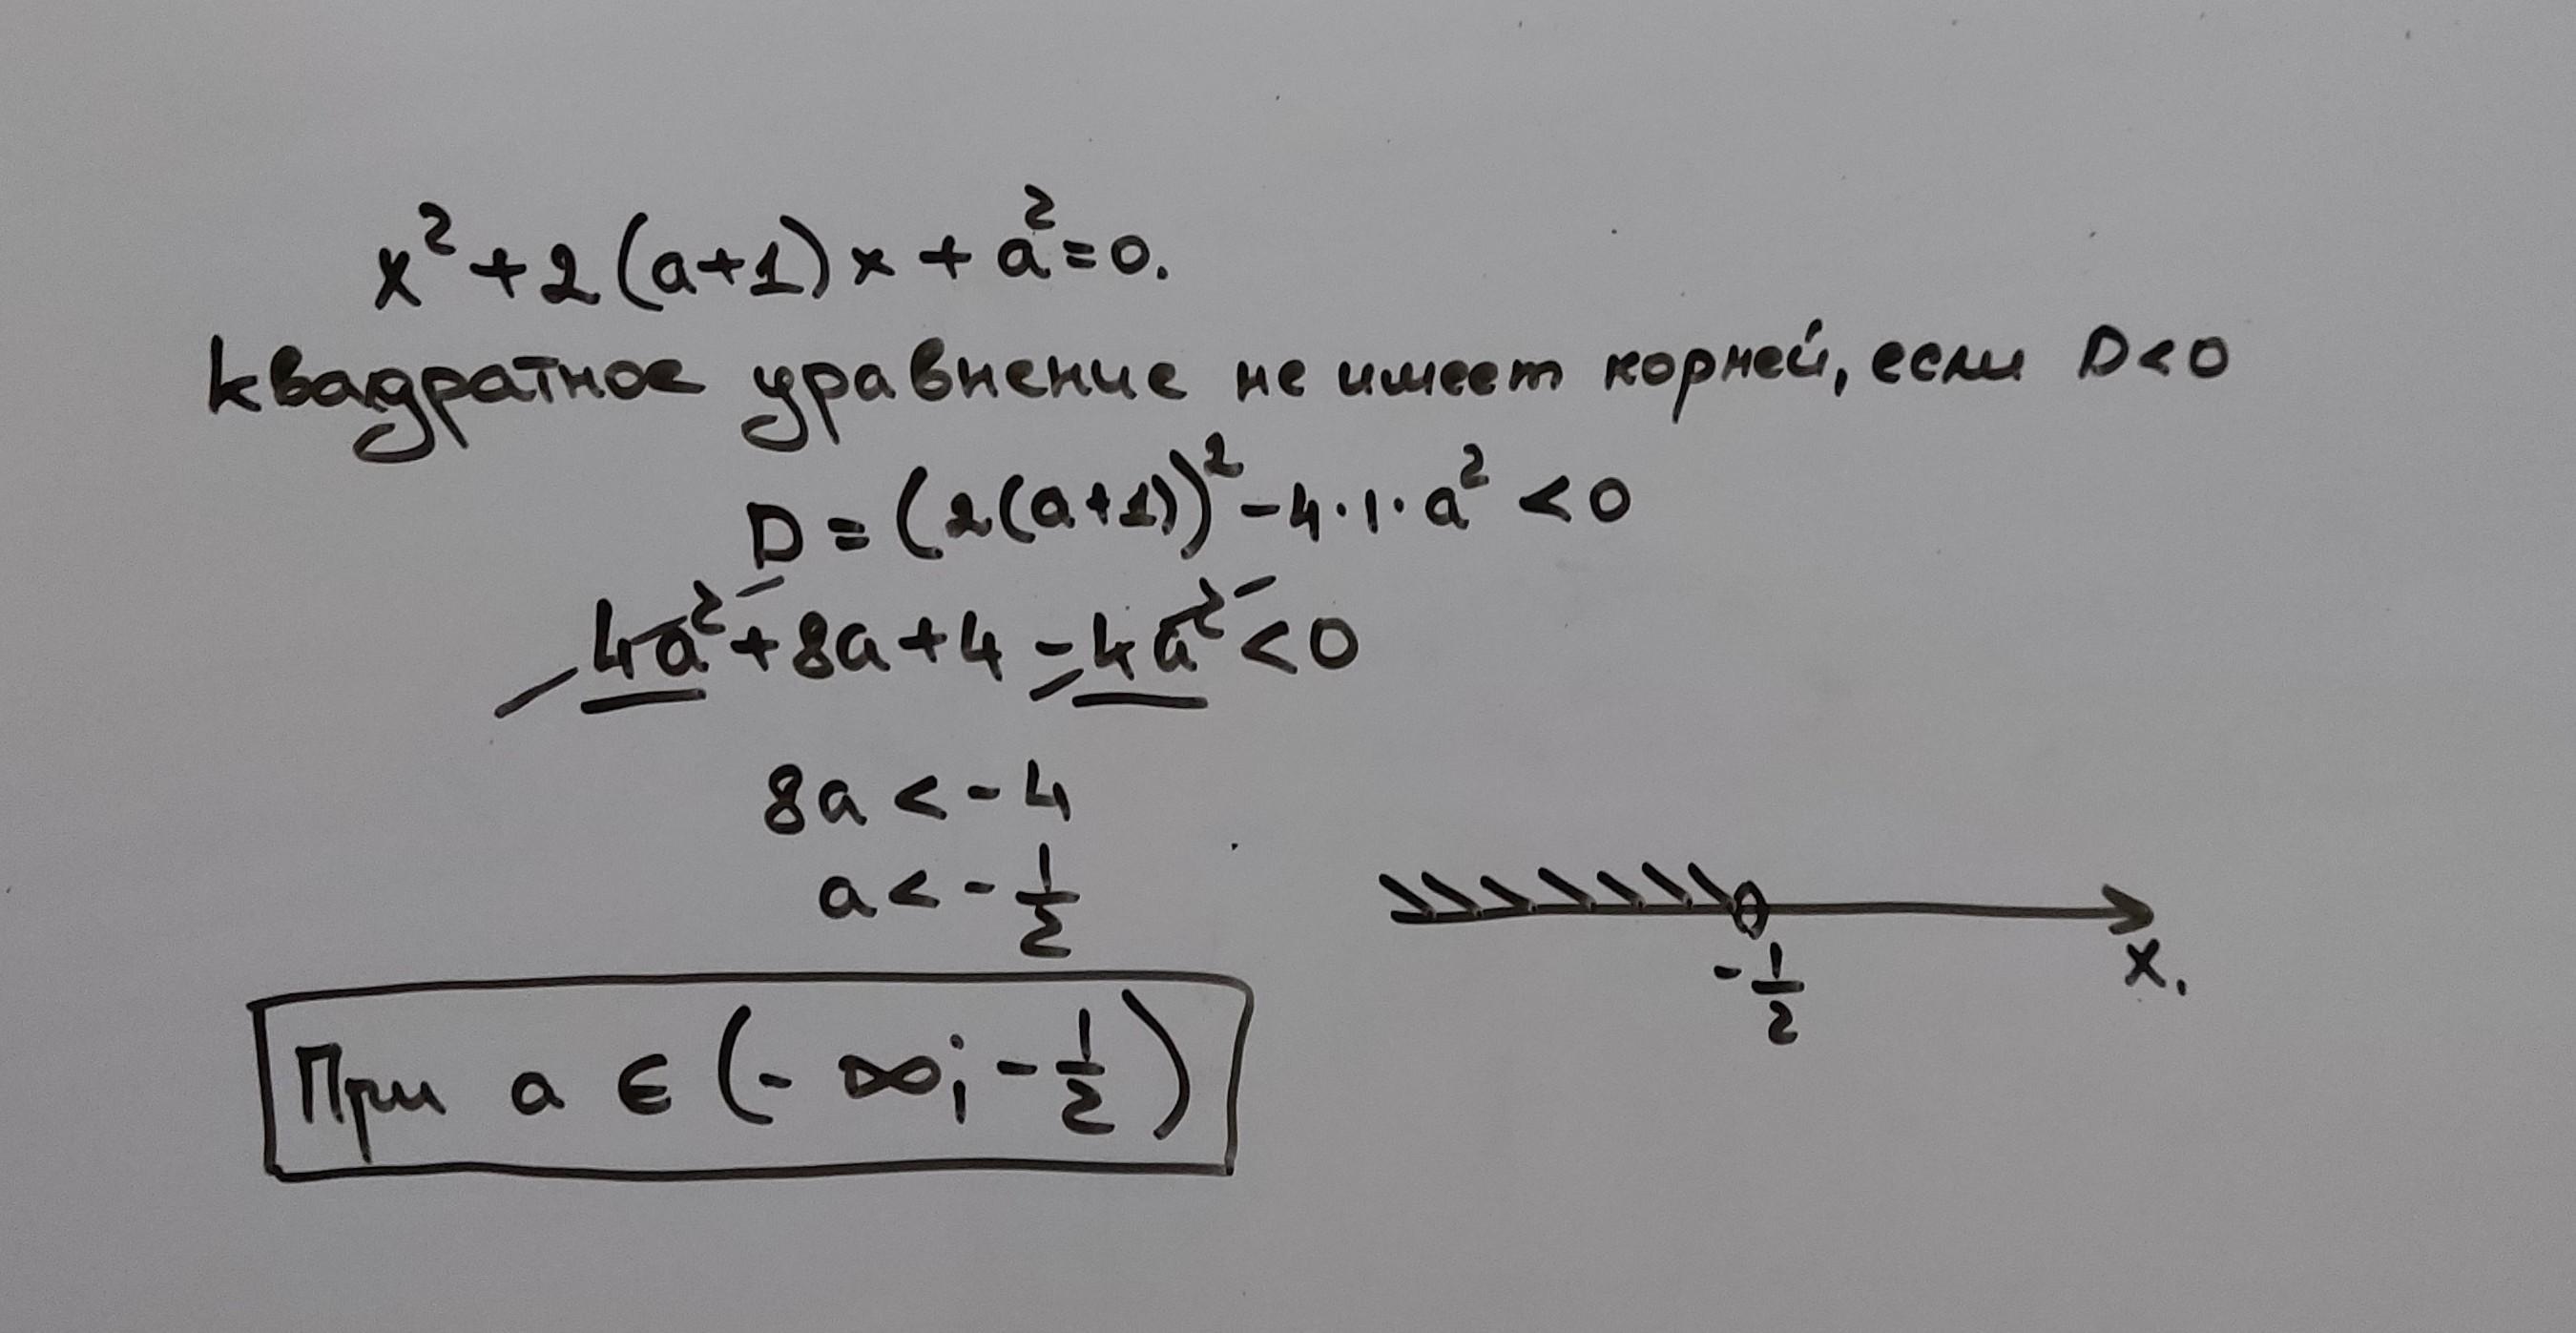 x² + 2(a+1)x + a² = 0.
Квадратное уравнение не имеет корней, если D<0
D = (2(a+1))² - 4·1·a² < 0
4a² + 8a + 4 - 4a² < 0
8a < -4
a < - 1/2
x.
- 1/2
При a ∈ (-∞; - 1/2)